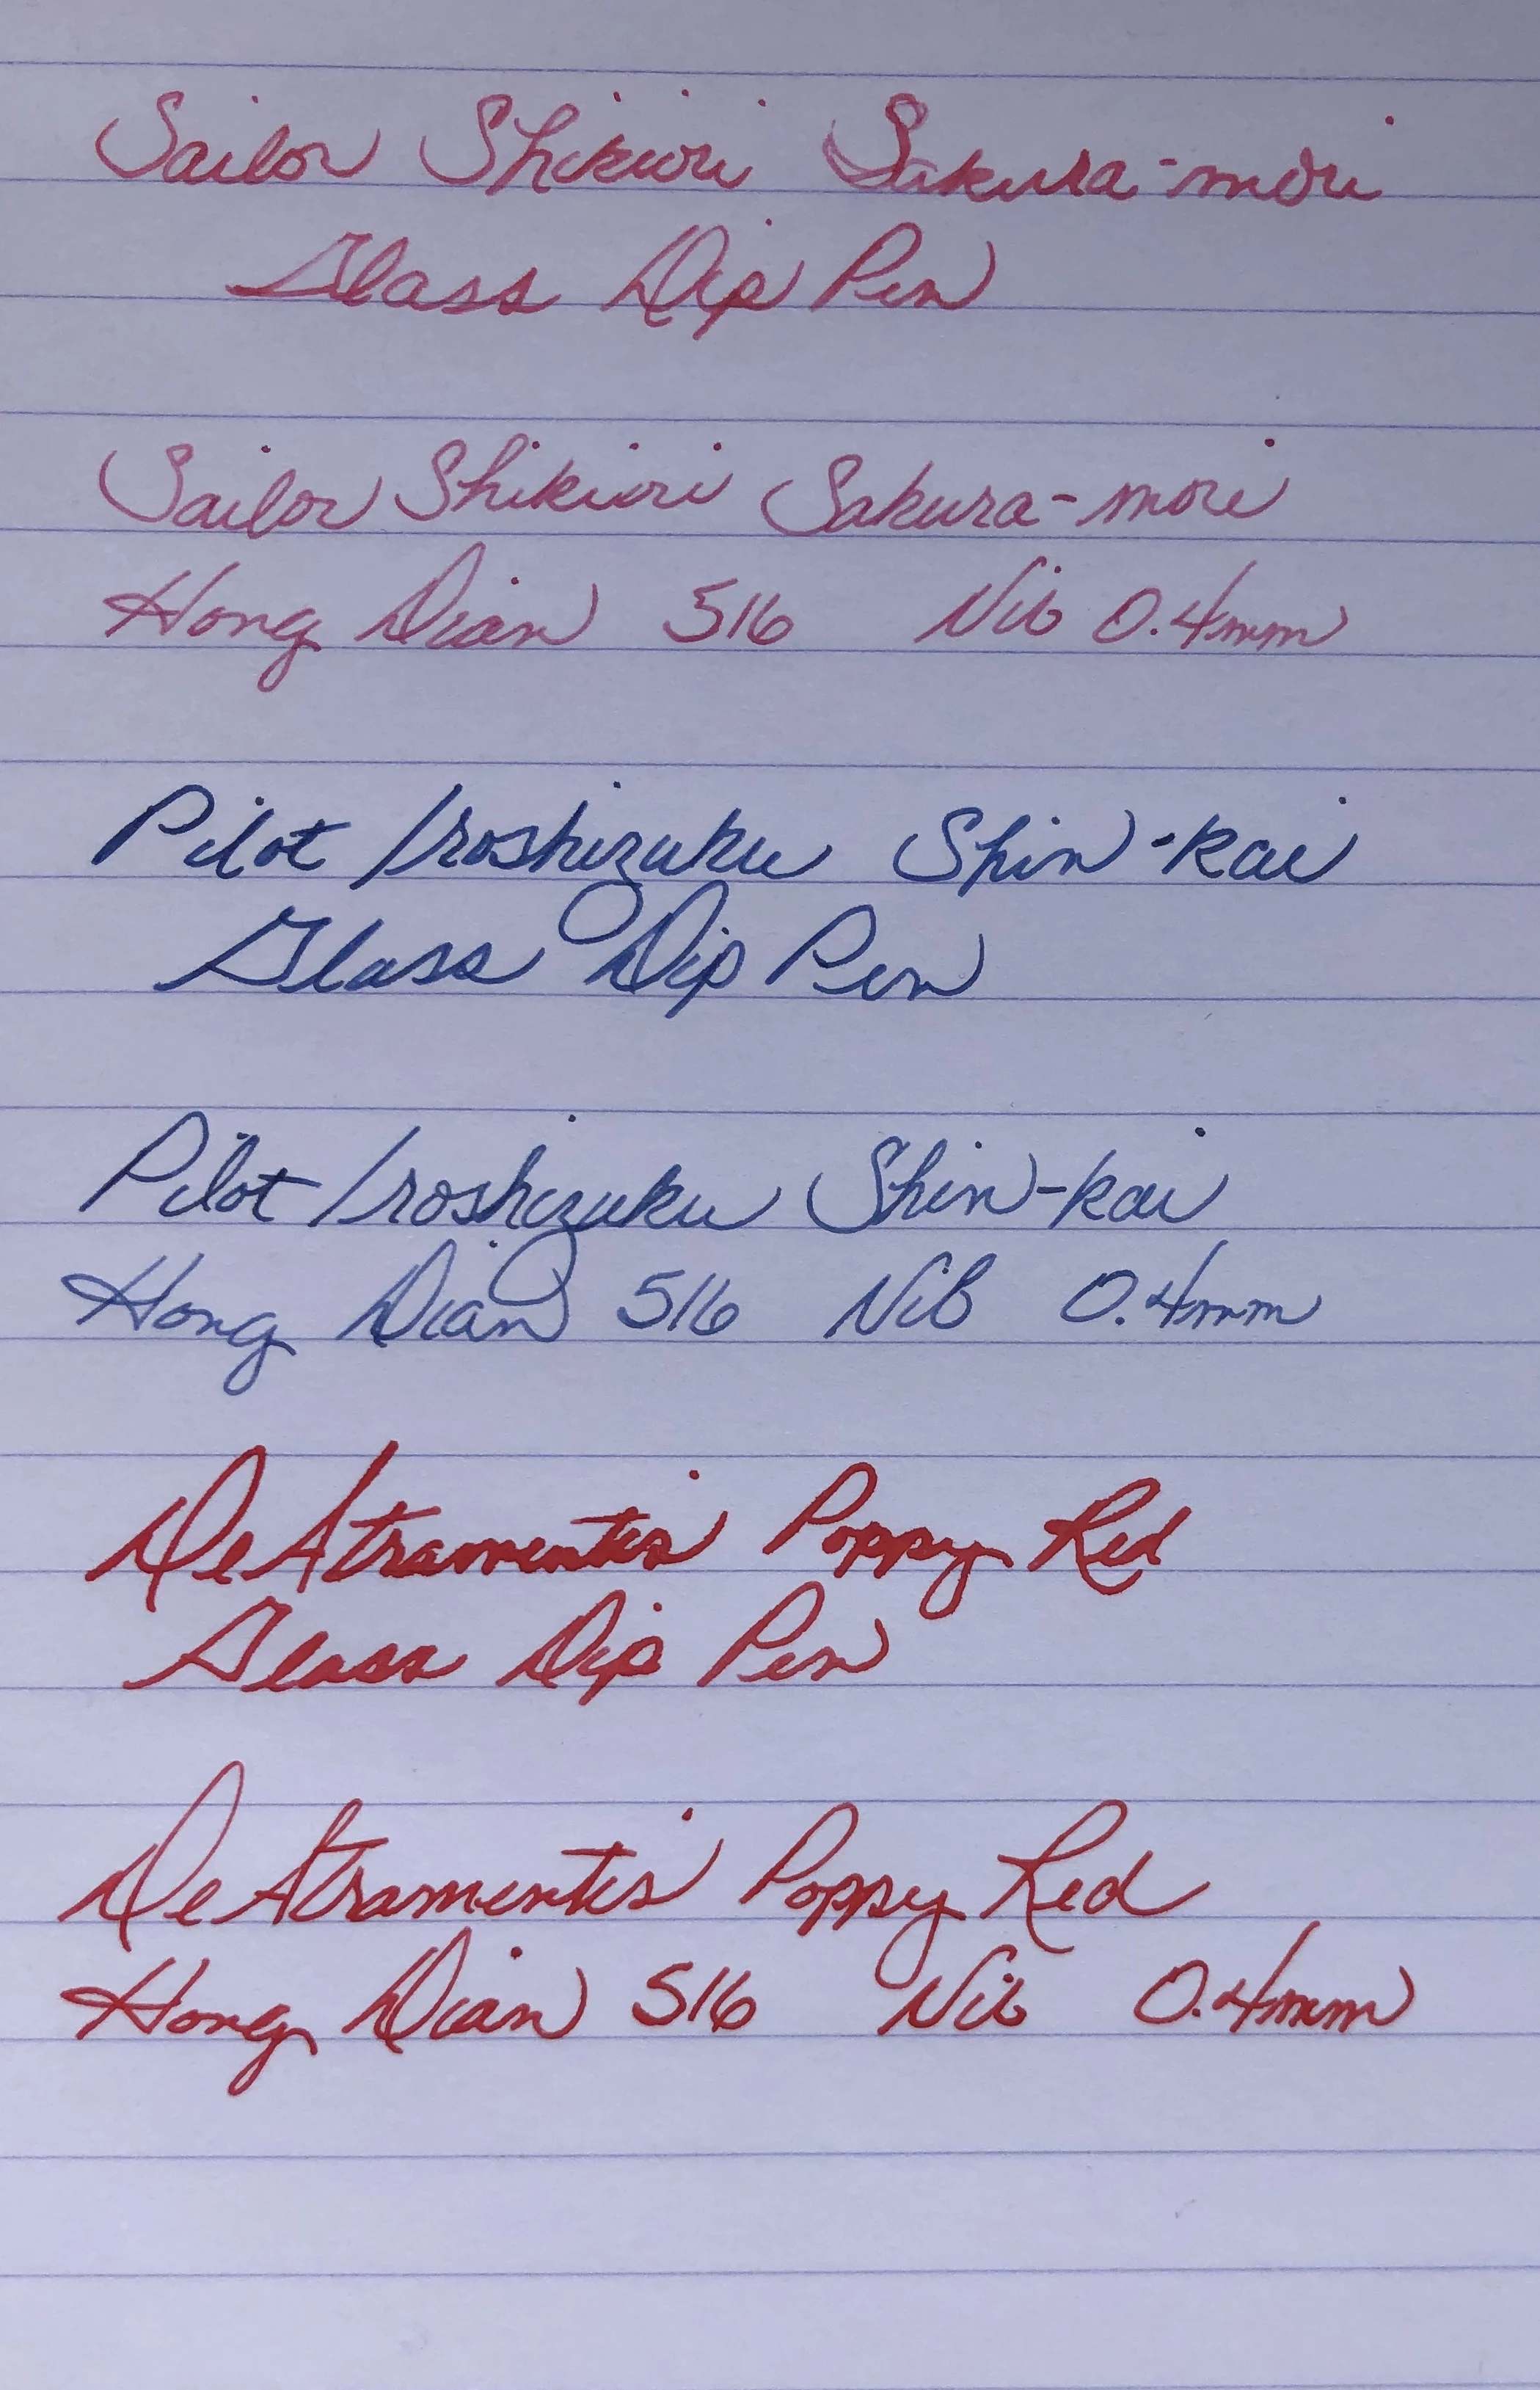 Sailor Shikiori Sakura-mori
Glass Dip Pen
Sailor Shikiori Sakura-mori
Hong Dian 516 Nib 0.4mm
Pilot Iroshizuku Shin-kai
Glass Dip Pen
Pilot Iroshizuku Shin-kai
Hong Dian 516 Nib 0.4mm
De Atramentis Poppy Red
Glass Dip Pen
De Atramentis Poppy Red
Hong Dian 516 Nib 0.4mm